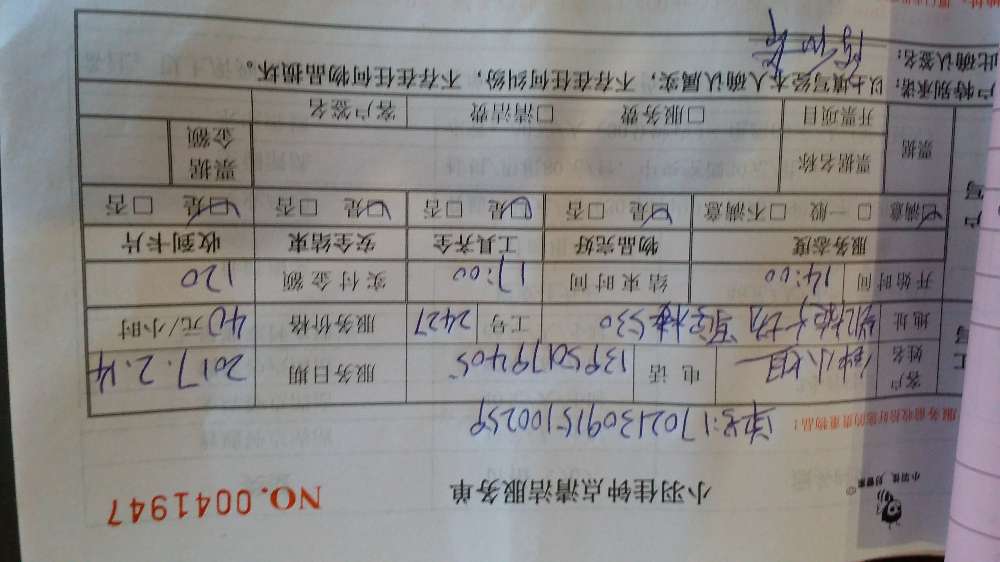 小羽佳钟点清洁服务单
NO.0041947
小羽佳 好管家
服务前收拾好您的贵重物品!
单号:1702130915100259
客户姓名 钟小姐 电话 13950179405 服务日期 2017.2.14
地址 工号 2427 服务价格 40元/小时
开始时间 14:00 结束时间 17:00 实付金额 120
服务态度 物品完好 工具齐全 安全结束 收到卡片
☑满意 □一般 □不满意 ☑是 □否 ☑是 □否 ☑是 □否 ☑是 □否
票据 票据名称 票据金额
开票项目 □服务费 □清洁费 客户签名
户特别承诺:以上填写经本人确认属实,不存在任何纠纷,不存在任何物品损坏。
此确认签名: